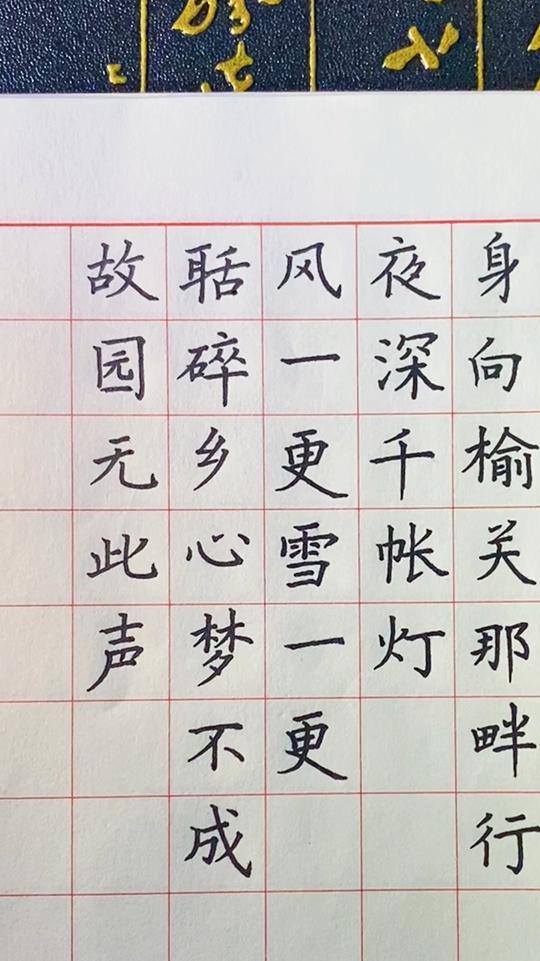 身向榆关那畔行
夜深千帐灯
风一更雪一更
聒碎乡心梦不成
故园无此声